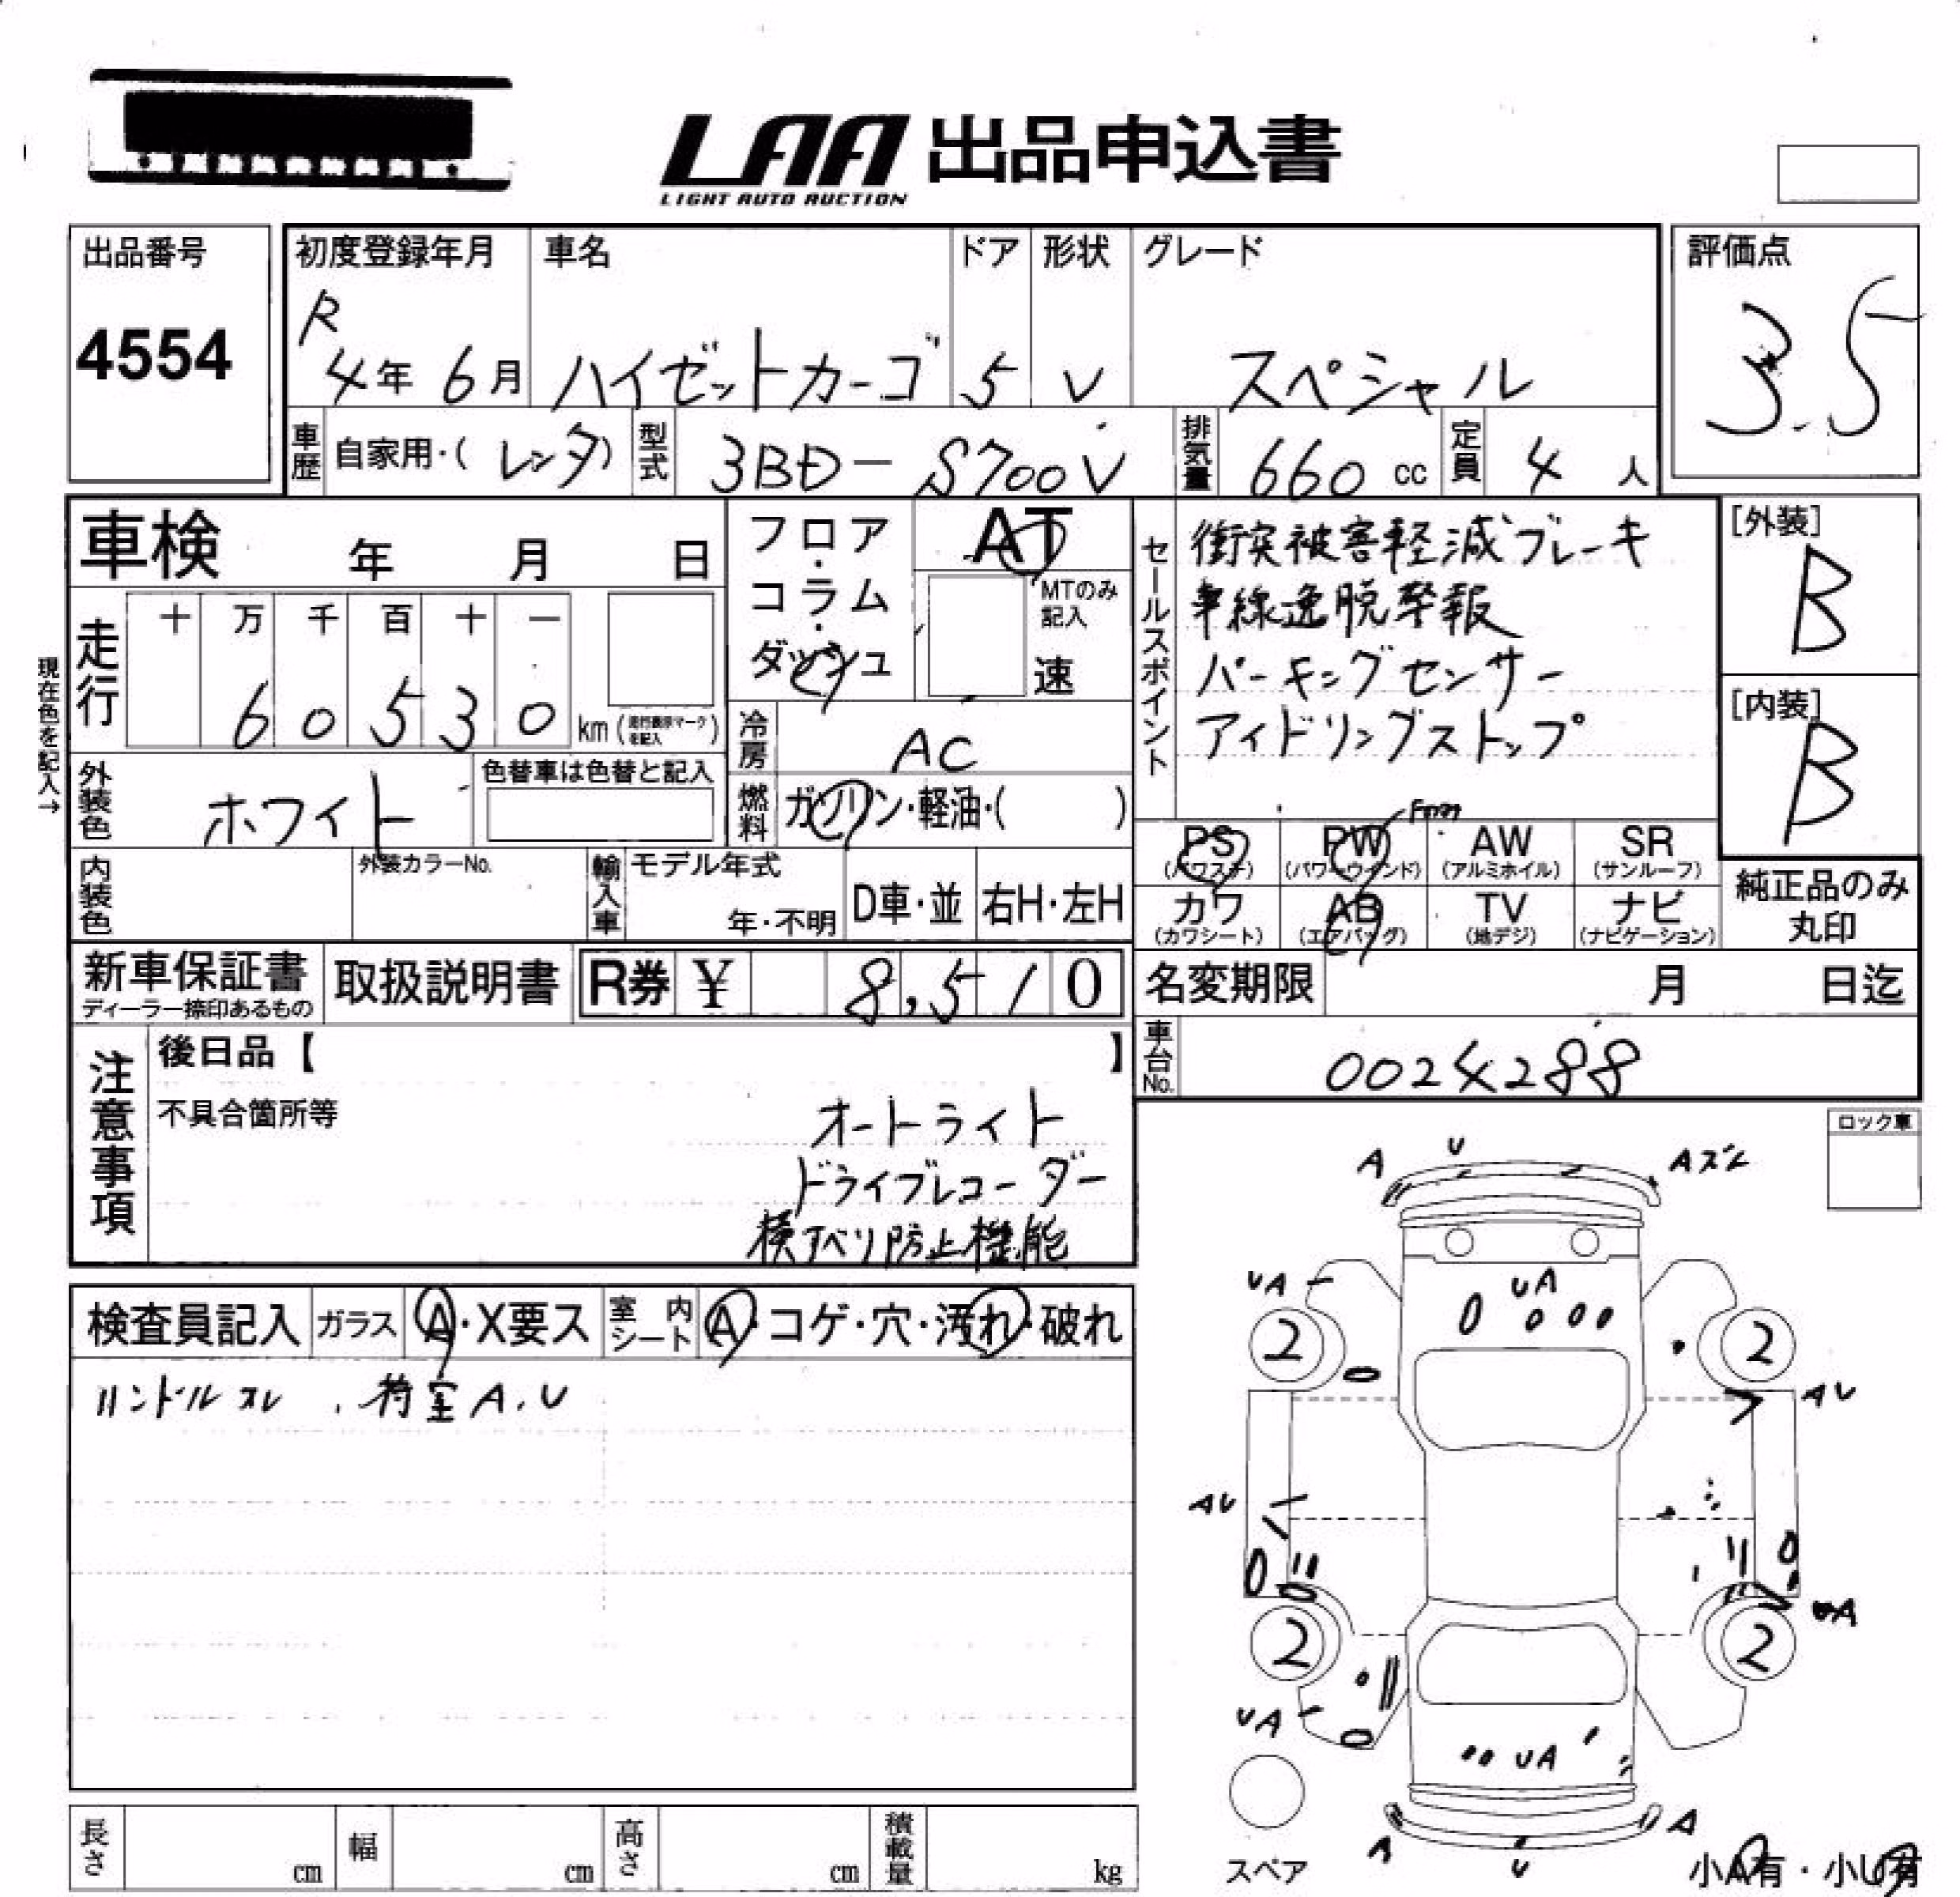 LAA 出品申込書
LIGHT AUTO AUCTION
出品番号
4554
初度登録年月
R
4年 6月
車名
ハイゼットカーゴ
ドア
5
形状
V
グレード
スペシャル
評価点
3.5
車歴 自家用・(レンタ)
型式 3BD-S700V
排気量 660 cc
定員 4 人
車検 年 月 日
フロア・コラム・ダッシュ
AT
MTのみ記入
速
セールスポイント
衝突被害軽減ブレーキ
車線逸脱警報
パーキングセンサー
アイドリングストップ
[外装]
B
[内装]
B
現在色を記入→
走行
十 万 千 百 十 一
6 0 5 3 0 km (走行表示マークを記入)
冷房 AC
外装色 ホワイト
色替車は色替と記入
燃料 ガソリン・軽油・( )
PS (パワステ)
PW (パワーウインド)
AW (アルミホイル)
SR (サンルーフ)
カワ (カワシート)
AB (エアバッグ)
TV (地デジ)
ナビ (ナビゲーション)
純正品のみ丸印
内装色
外装カラーNo.
輸入車
モデル年式
年・不明
D車・並
右H・左H
新車保証書
ディーラー捺印あるもの
取扱説明書
R券 ¥ 8,510
名変期限 月 日迄
車台No. 0024288
注意事項
後日品【 】
不具合箇所等
オートライト
ドライブレコーダー
横スベリ防止機能
ロック車
検査員記入
ガラス A・X要ス
室内シート A・コゲ・穴・汚れ・破れ
ハンドルスレ、荷室A、U
A U Aズレ
UA UA
2 2
AU
AU
UA
2 2
UA UA
A U A
スペア
小A有・小U有
長さ cm
幅 cm
高さ cm
積載量 kg